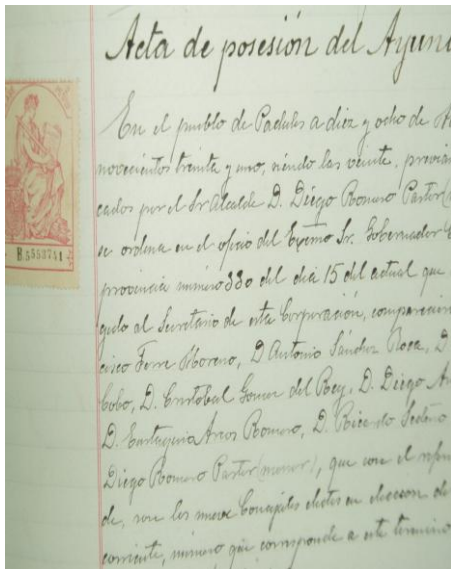 Acta de posesión del Ayun
En el pueblo de Padules a diez y ocho de A
novecientos treinta y uno, siendo las veinte, previam
cados por el Sr Alcalde D. Diego Romero Pastor (
se ordena en el oficio del Exmo Sr. Gobernador
B.5553741
provincia número 330 del dia 15 del actual que
gado al Secretario de esta Corporación, comparecien
cisco Ferre Moreno, D Antonio Sánchez Roca, D
Cobo, D. Cristóbal Gomez del Rey, D. Diego A
D. Arcos Romero, D. Ricardo Sedeño
Diego Romero Pastor (menor), que con el
de, son los nueve Concejales electos en eleccion de
corriente, número que corresponde a este termino